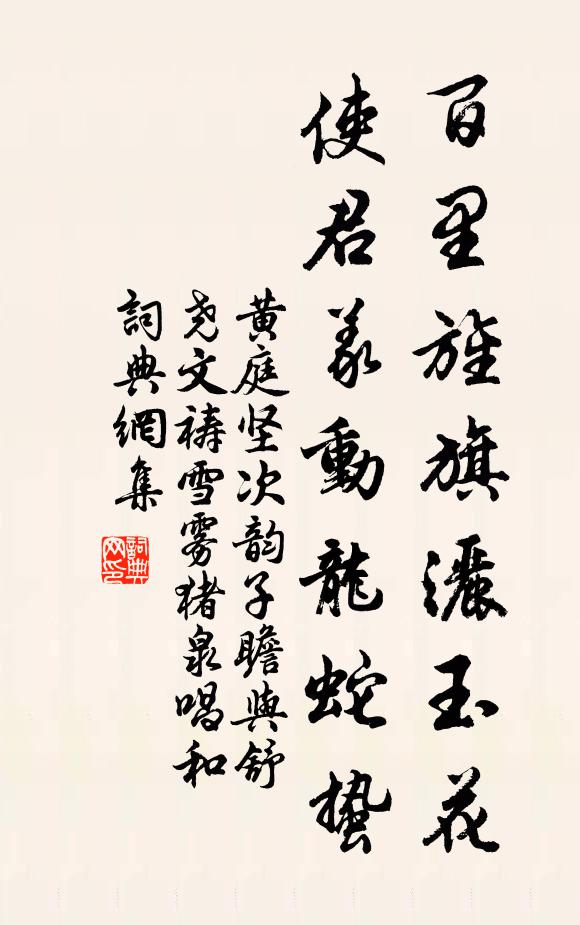 百里旌旗灑玉花
使君義動龍蛇蟄
黄庭坚次韵子瞻與舒
尭文禱雪雾猪泉唱和
詞典網集
詞典网印